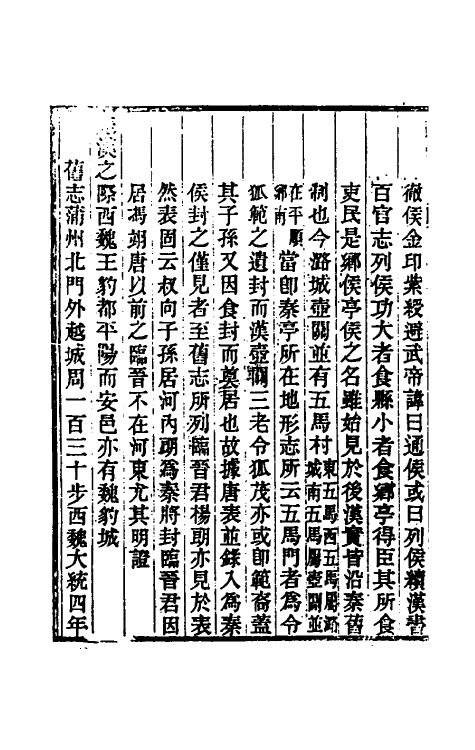 徹侯金印紫綬避武帝諱曰通侯或曰列侯續漢書
百官志列侯功大者食縣小者食鄉亭得臣其所食
吏民是鄉侯亭侯之名雖始見於後漢實皆沿秦舊
制也今潞城壺關並有五馬村東五馬西五馬屬潞城南五馬屬壺關並
在平順鄉南當卽秦亭所在地形志所云五馬門者爲令
狐範之遺封而漢壺關三老令狐茂亦或卽範裔蓋
其子孫又因食封而奠居也故據唐表並錄入爲秦
侯封之僅見者至舊志所列臨晉君楊朝亦見於表
然表固云叔向子孫居河內朝爲秦將封臨晉君因
居馮翊唐以前之臨晉不在河東尤其明證
漢之際西魏王豹都平陽而安邑亦有魏豹城
舊志蒲州北門外越城周一百三十步西魏大統四年